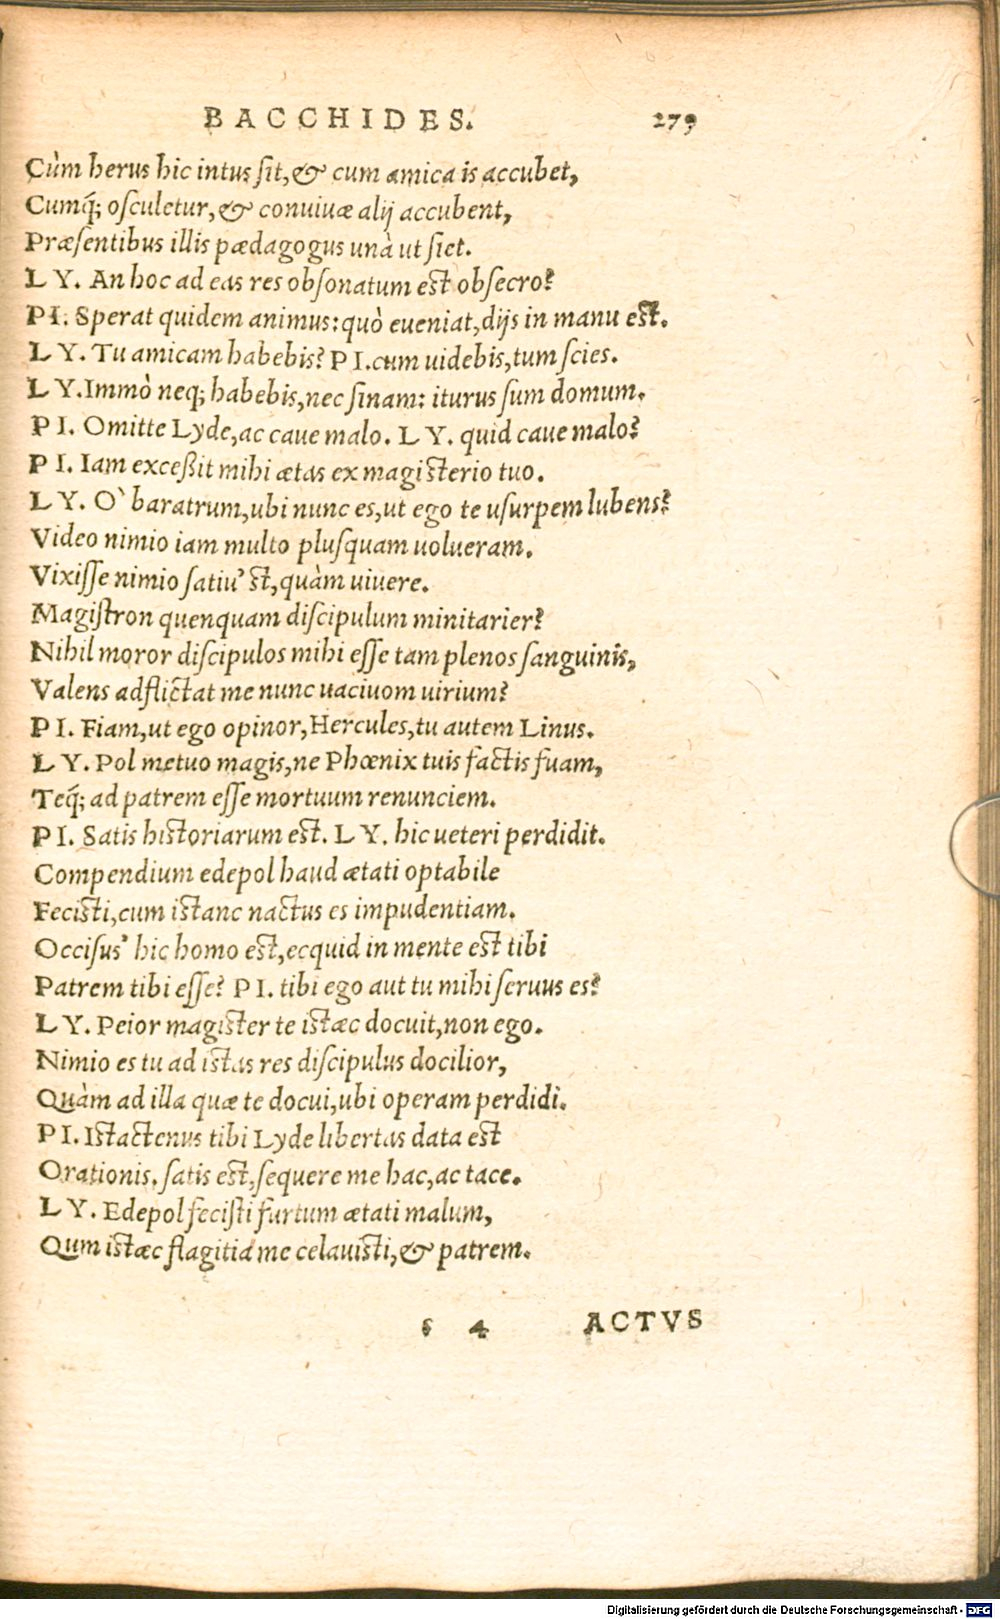 BACCHIDES. 279
Cùm herus hic intus ſit, & cum amica is accubet,
Cumq́; oſculetur, & conuiuæ alij accubent,
Præſentibus illis pædagogus unà ut ſiet.
LY. An hoc ad eas res obſonatum eſt obſecro?
PI. Sperat quidem animus: quò eueniat, dijs in manu eſt.
LY. Tu amicam habebis? PI. cum uidebis, tum ſcies.
LY. Immò neq; habebis, nec ſinam: iturus ſum domum.
PI. Omitte Lyde, ac caue malo. LY. quid caue malo?
PI. Iam exceßit mihi ætas ex magiſterio tuo.
LY. O` baratrum, ubi nunc es, ut ego te uſurpem lubens?
Video nimio iam multo pluſquam uolueram.
Vixiſſe nimio ſatiu' ſt, quàm uiuere.
Magiſtron quenquam diſcipulum minitarier?
Nihil moror diſcipulos mihi eſſe tam plenos ſanguinis,
Valens adflictat me nunc uaciuom uirium?
PI. Fiam, ut ego opinor, Hercules, tu autem Linus.
LY. Pol metuo magis, ne Phœnix tuis factis fuam,
Teq́; ad patrem eſſe mortuum renunciem.
PI. Satis hiſtoriarum eſt. LY. hic ueteri perdidit.
Compendium edepol haud ætati optabile
Feciſti, cum iſtanc nactus es impudentiam.
Occiſus' hic homo eſt, ecquid in mente eſt tibi
Patrem tibi eſſe? PI. tibi ego aut tu mihi ſeruus es?
LY. Peior magiſter te iſtæc docuit, non ego.
Nimio es tu ad iſtas res diſcipulus docilior,
Quàm ad illa quæ te docui, ubi operam perdidi.
PI. Iſtactenus tibi Lyde libertas data eſt
Orationis. ſatis eſt, ſequere me hac, ac tace.
LY. Edepol feciſti furtum ætati malum,
Qum iſtæc flagitia me celauiſti, & patrem.
ſ 4 ACTVS
Digitalisierung gefördert durch die Deutsche Forschungsgemeinschaft - DFG